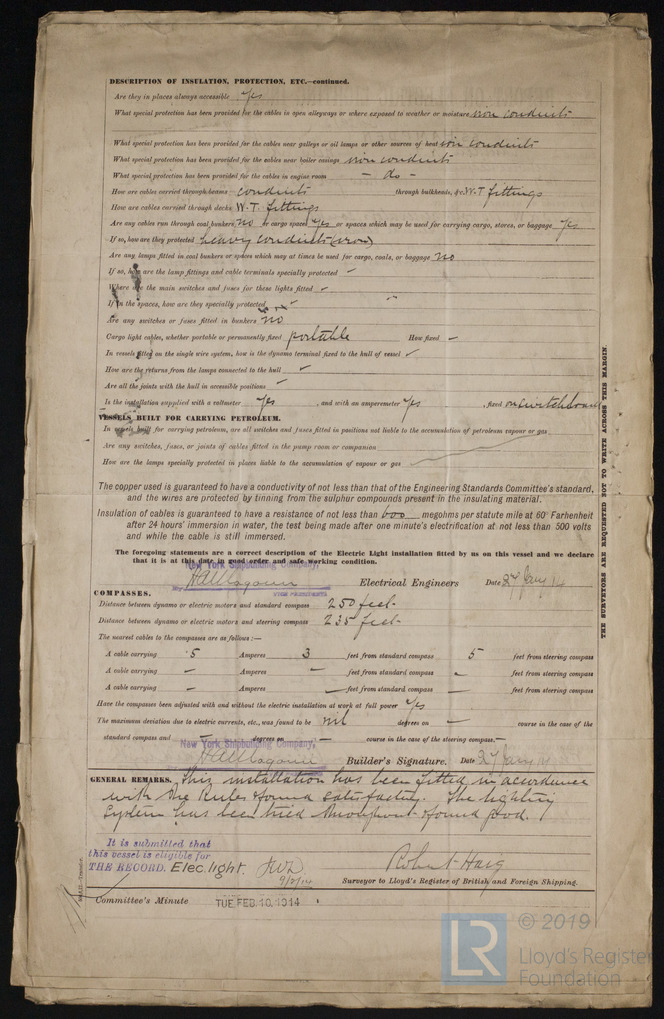 DESCRIPTION OF INSULATION, PROTECTION, ETC.—continued.
Are they in places always accessible yes
What special protection has been provided for the cables in open alleyways or where exposed to weather or moisture iron conduits
What special protection has been provided for the cables near galleys or oil lamps or other sources of heat iron conduits
What special protection has been provided for the cables near boiler casings iron conduits
What special protection has been provided for the cables in engine room - do -
How are cables carried through beams conduits through bulkheads, &c. W.T. fittings
How are cables carried through decks W.T. fittings
Are any cables run through coal bunkers no or cargo spaces yes or spaces which may be used for carrying cargo, stores, or baggage yes
If so, how are they protected heavy conduits (iron)
Are any lamps fitted in coal bunkers or spaces which may at times be used for cargo, coals, or baggage no
If so, how are the lamp fittings and cable terminals specially protected
Where are the main switches and fuses for these lights fitted
If in the spaces, how are they specially protected
Are any switches or fuses fitted in bunkers no
Cargo light cables, whether portable or permanently fixed portable How fixed -
In vessels fitted on the single wire system, how is the dynamo terminal fixed to the hull of vessel
How are the returns from the lamps connected to the hull
Are all the joints with the hull in accessible positions
Is the installation supplied with a voltmeter yes, and with an amperemeter yes, fixed on switchboard
VESSELS BUILT FOR CARRYING PETROLEUM.
In vessels built for carrying petroleum, are all switches and fuses fitted in positions not liable to the accumulation of petroleum vapour or gas
Are any switches, fuses, or joints of cables fitted in the pump room or companion
How are the lamps specially protected in places liable to the accumulation of vapour or gas
The copper used is guaranteed to have a conductivity of not less than that of the Engineering Standards Committee's standard,
and the wires are protected by tinning from the sulphur compounds present in the insulating material.
Insulation of cables is guaranteed to have a resistance of not less than 600 megohms per statute mile at 60° Farhenheit
after 24 hours' immersion in water, the test being made after one minute's electrification at not less than 500 volts
and while the cable is still immersed.
The foregoing statements are a correct description of the Electric Light installation fitted by us on this vessel and we declare
that it is at this date in good order and safe working condition.
New York Shipbuilding Company,
Electrical Engineers Date 27 Jany 14
VICE PRESIDENT
COMPASSES.
Distance between dynamo or electric motors and standard compass 250 feet
Distance between dynamo or electric motors and steering compass 235 feet
The nearest cables to the compasses are as follows:—
A cable carrying 5 Amperes 3 feet from standard compass 5 feet from steering compass
A cable carrying - Amperes - feet from standard compass - feet from steering compass
A cable carrying - Amperes - feet from standard compass - feet from steering compass
Have the compasses been adjusted with and without the electric installation at work at full power yes
The maximum deviation due to electric currents, etc., was found to be nil degrees on - course in the case of the
standard compass and - degrees on - course in the case of the steering compass.
New York Shipbuilding Company,
Builder's Signature. Date 27 Jany 14
GENERAL REMARKS. This installation has been fitted in accordance
with the Rules & found satisfactory. The lighting
system has been tried throughout & found good.
It is submitted that
this vessel is eligible for
THE RECORD. Elec. light.
9/2/14
Robert Haig
Surveyor to Lloyd's Register of British and Foreign Shipping.
Committee's Minute TUE. FEB. 10. 1914
THE SURVEYORS ARE REQUESTED NOT TO WRITE ACROSS THIS MARGIN.
LR
© 2019
Lloyd's Register
Foundation